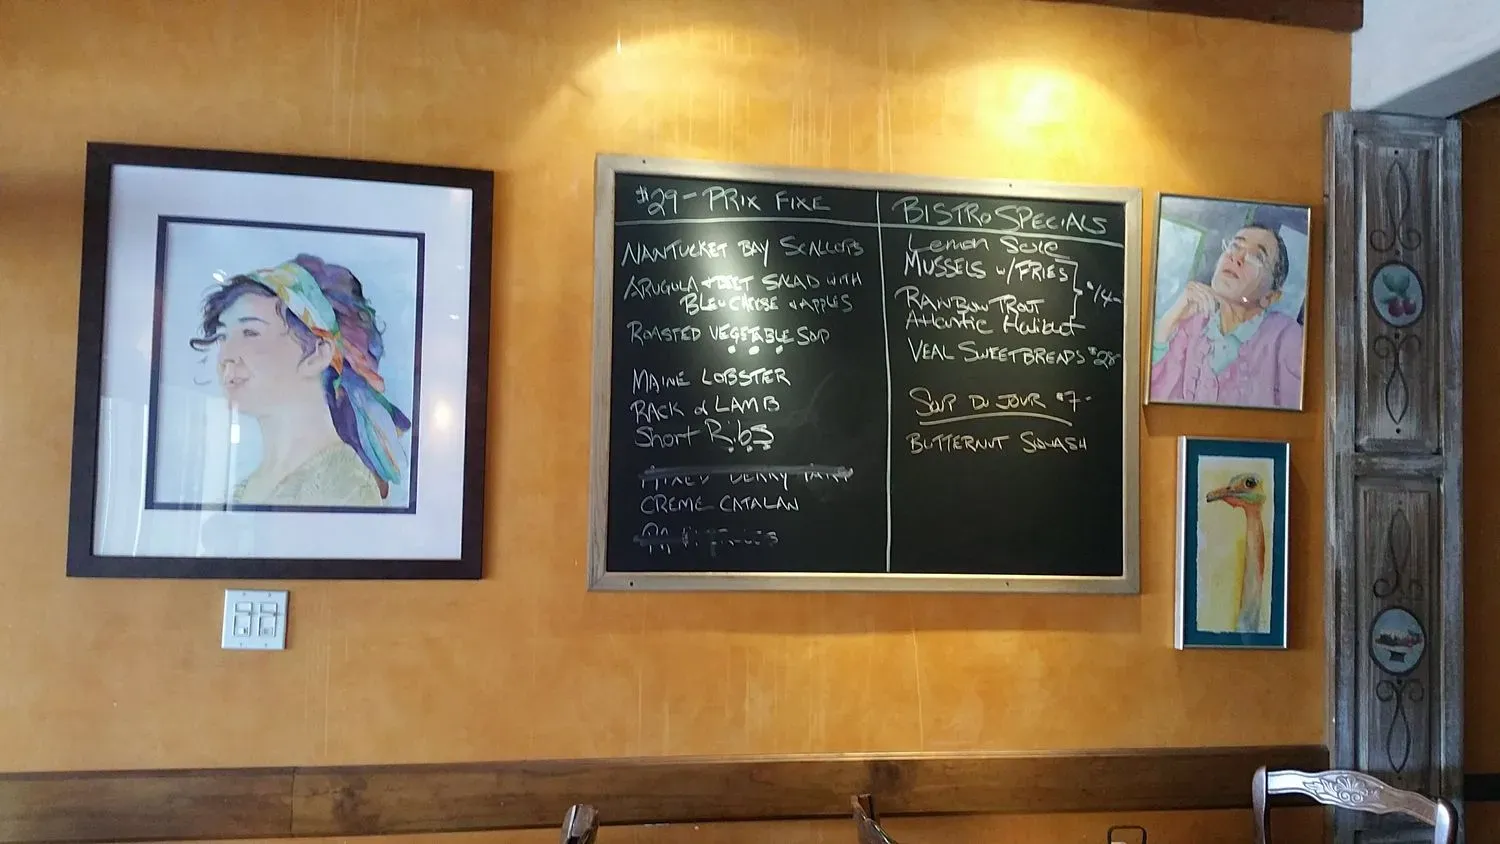 $29- PRIX FIXE
NANTUCKET BAY SCALLOPS
ARUGULA + BEET SALAD WITH
BLEU CHEESE + APPLES
ROASTED VEGETABLE SOUP
MAINE LOBSTER
RACK of LAMB
Short Ribs
MIXED BERRY TART
CREME CATALAN
BISTRO SPECIALS
Lemon Sole
MUSSELS w/ FRIES
$14-
RAINBOW TROUT
Atlantic Halibut
VEAL SWEETBREADS $28
SOUP DU JOUR $7-
BUTTERNUT SQUASH